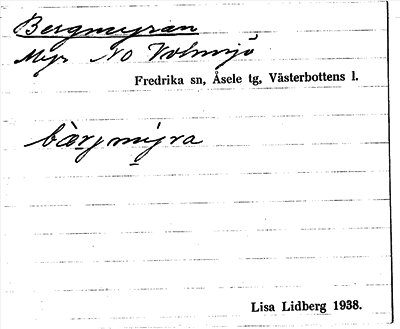 Bergmyran
Myr NO Volmsjö
Fredrika sn, Åsele tg, Västerbottens l.
bær̩jmýra
Lisa Lidberg 1938.